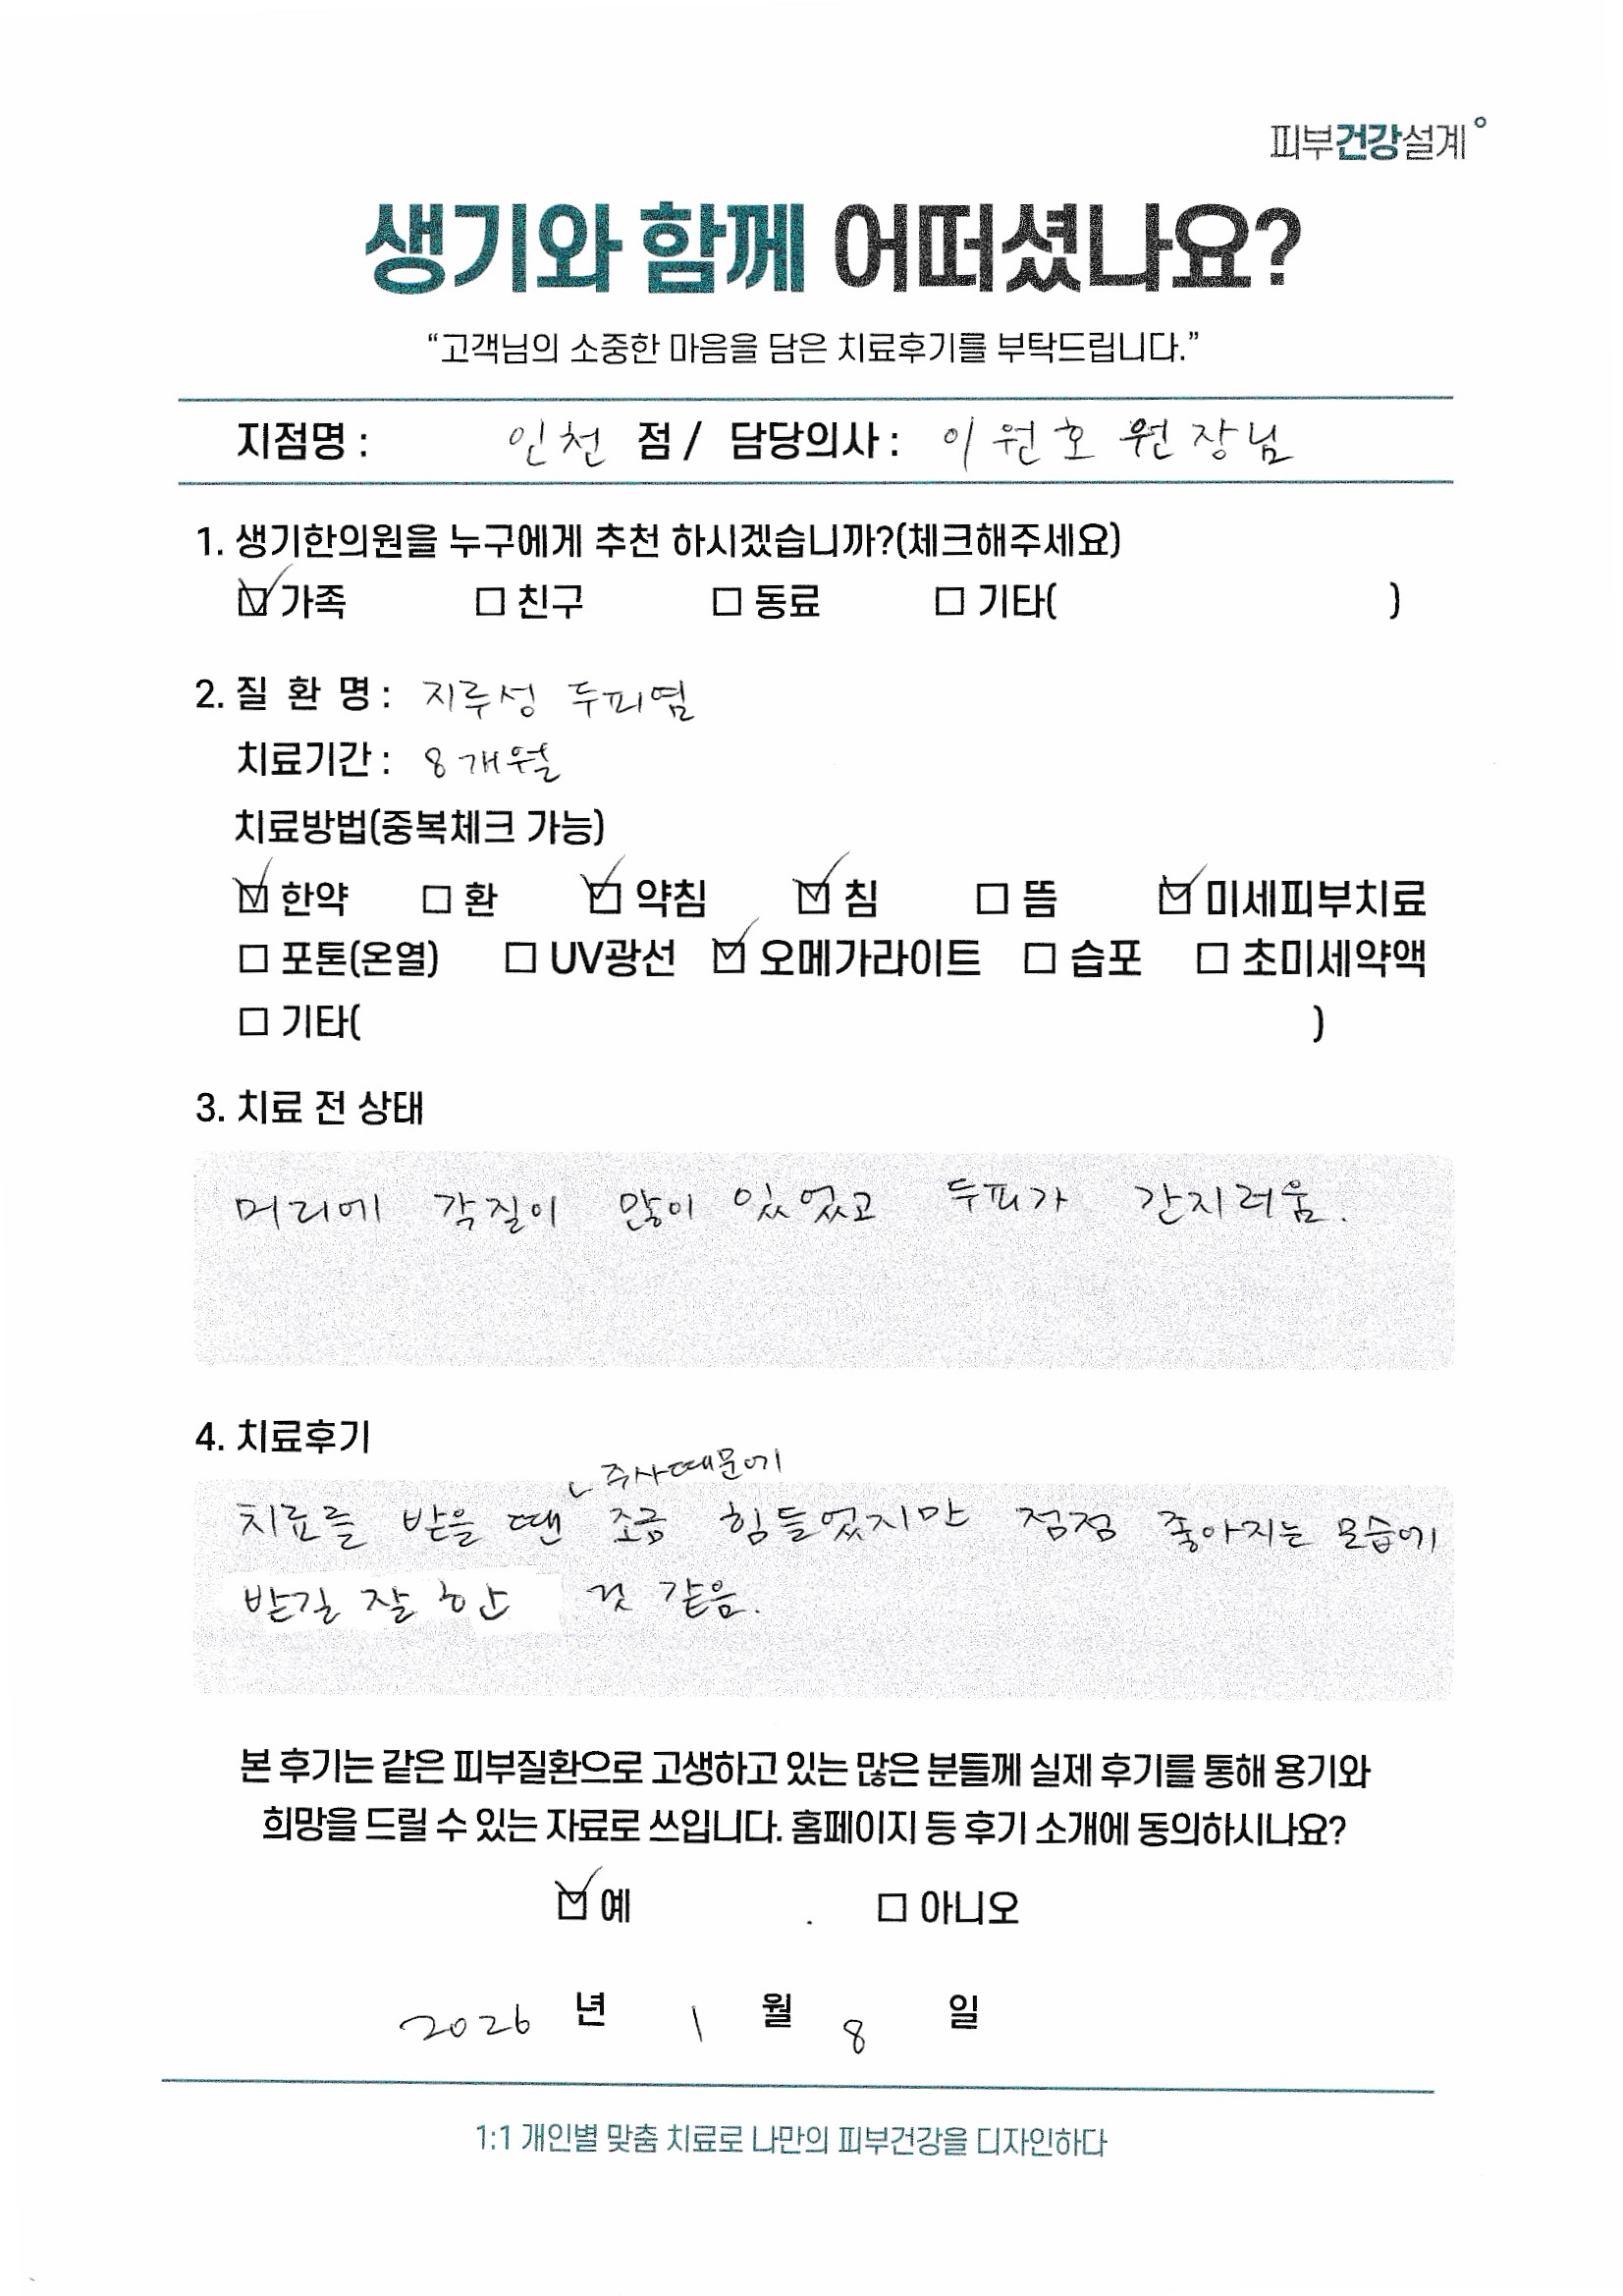 피부건강설계
생기와 함께 어떠셨나요?
“고객님의 소중한 마음을 담은 치료후기를 부탁드립니다.”
지점명 : 인천 점 / 담당의사 : 이원호 원장님
1. 생기한의원을 누구에게 추천 하시겠습니까?(체크해주세요)
☑ 가족 □ 친구 □ 동료 □ 기타( )
2. 질 환 명 : 지루성 두피염
치료기간 : 8개월
치료방법(중복체크 가능)
☑ 한약 □ 환 ☑ 약침 ☑ 침 □ 뜸 ☑ 미세피부치료
□ 포톤(온열) □ UV광선 ☑ 오메가라이트 □ 습포 □ 초미세약액
□ 기타( )
3. 치료 전 상태
머리에 각질이 많이 있었고 두피가 간지러움.
4. 치료후기
주사때문에
치료를 받을 땐 조금 힘들었지만 점점 좋아지는 모습에
받길 잘 한 것 같음.
본 후기는 같은 피부질환으로 고생하고 있는 많은 분들께 실제 후기를 통해 용기와
희망을 드릴 수 있는 자료로 쓰입니다. 홈페이지 등 후기 소개에 동의하시나요?
☑ 예 □ 아니오
2026 년 1 월 8 일
1:1 개인별 맞춤 치료로 나만의 피부건강을 디자인하다